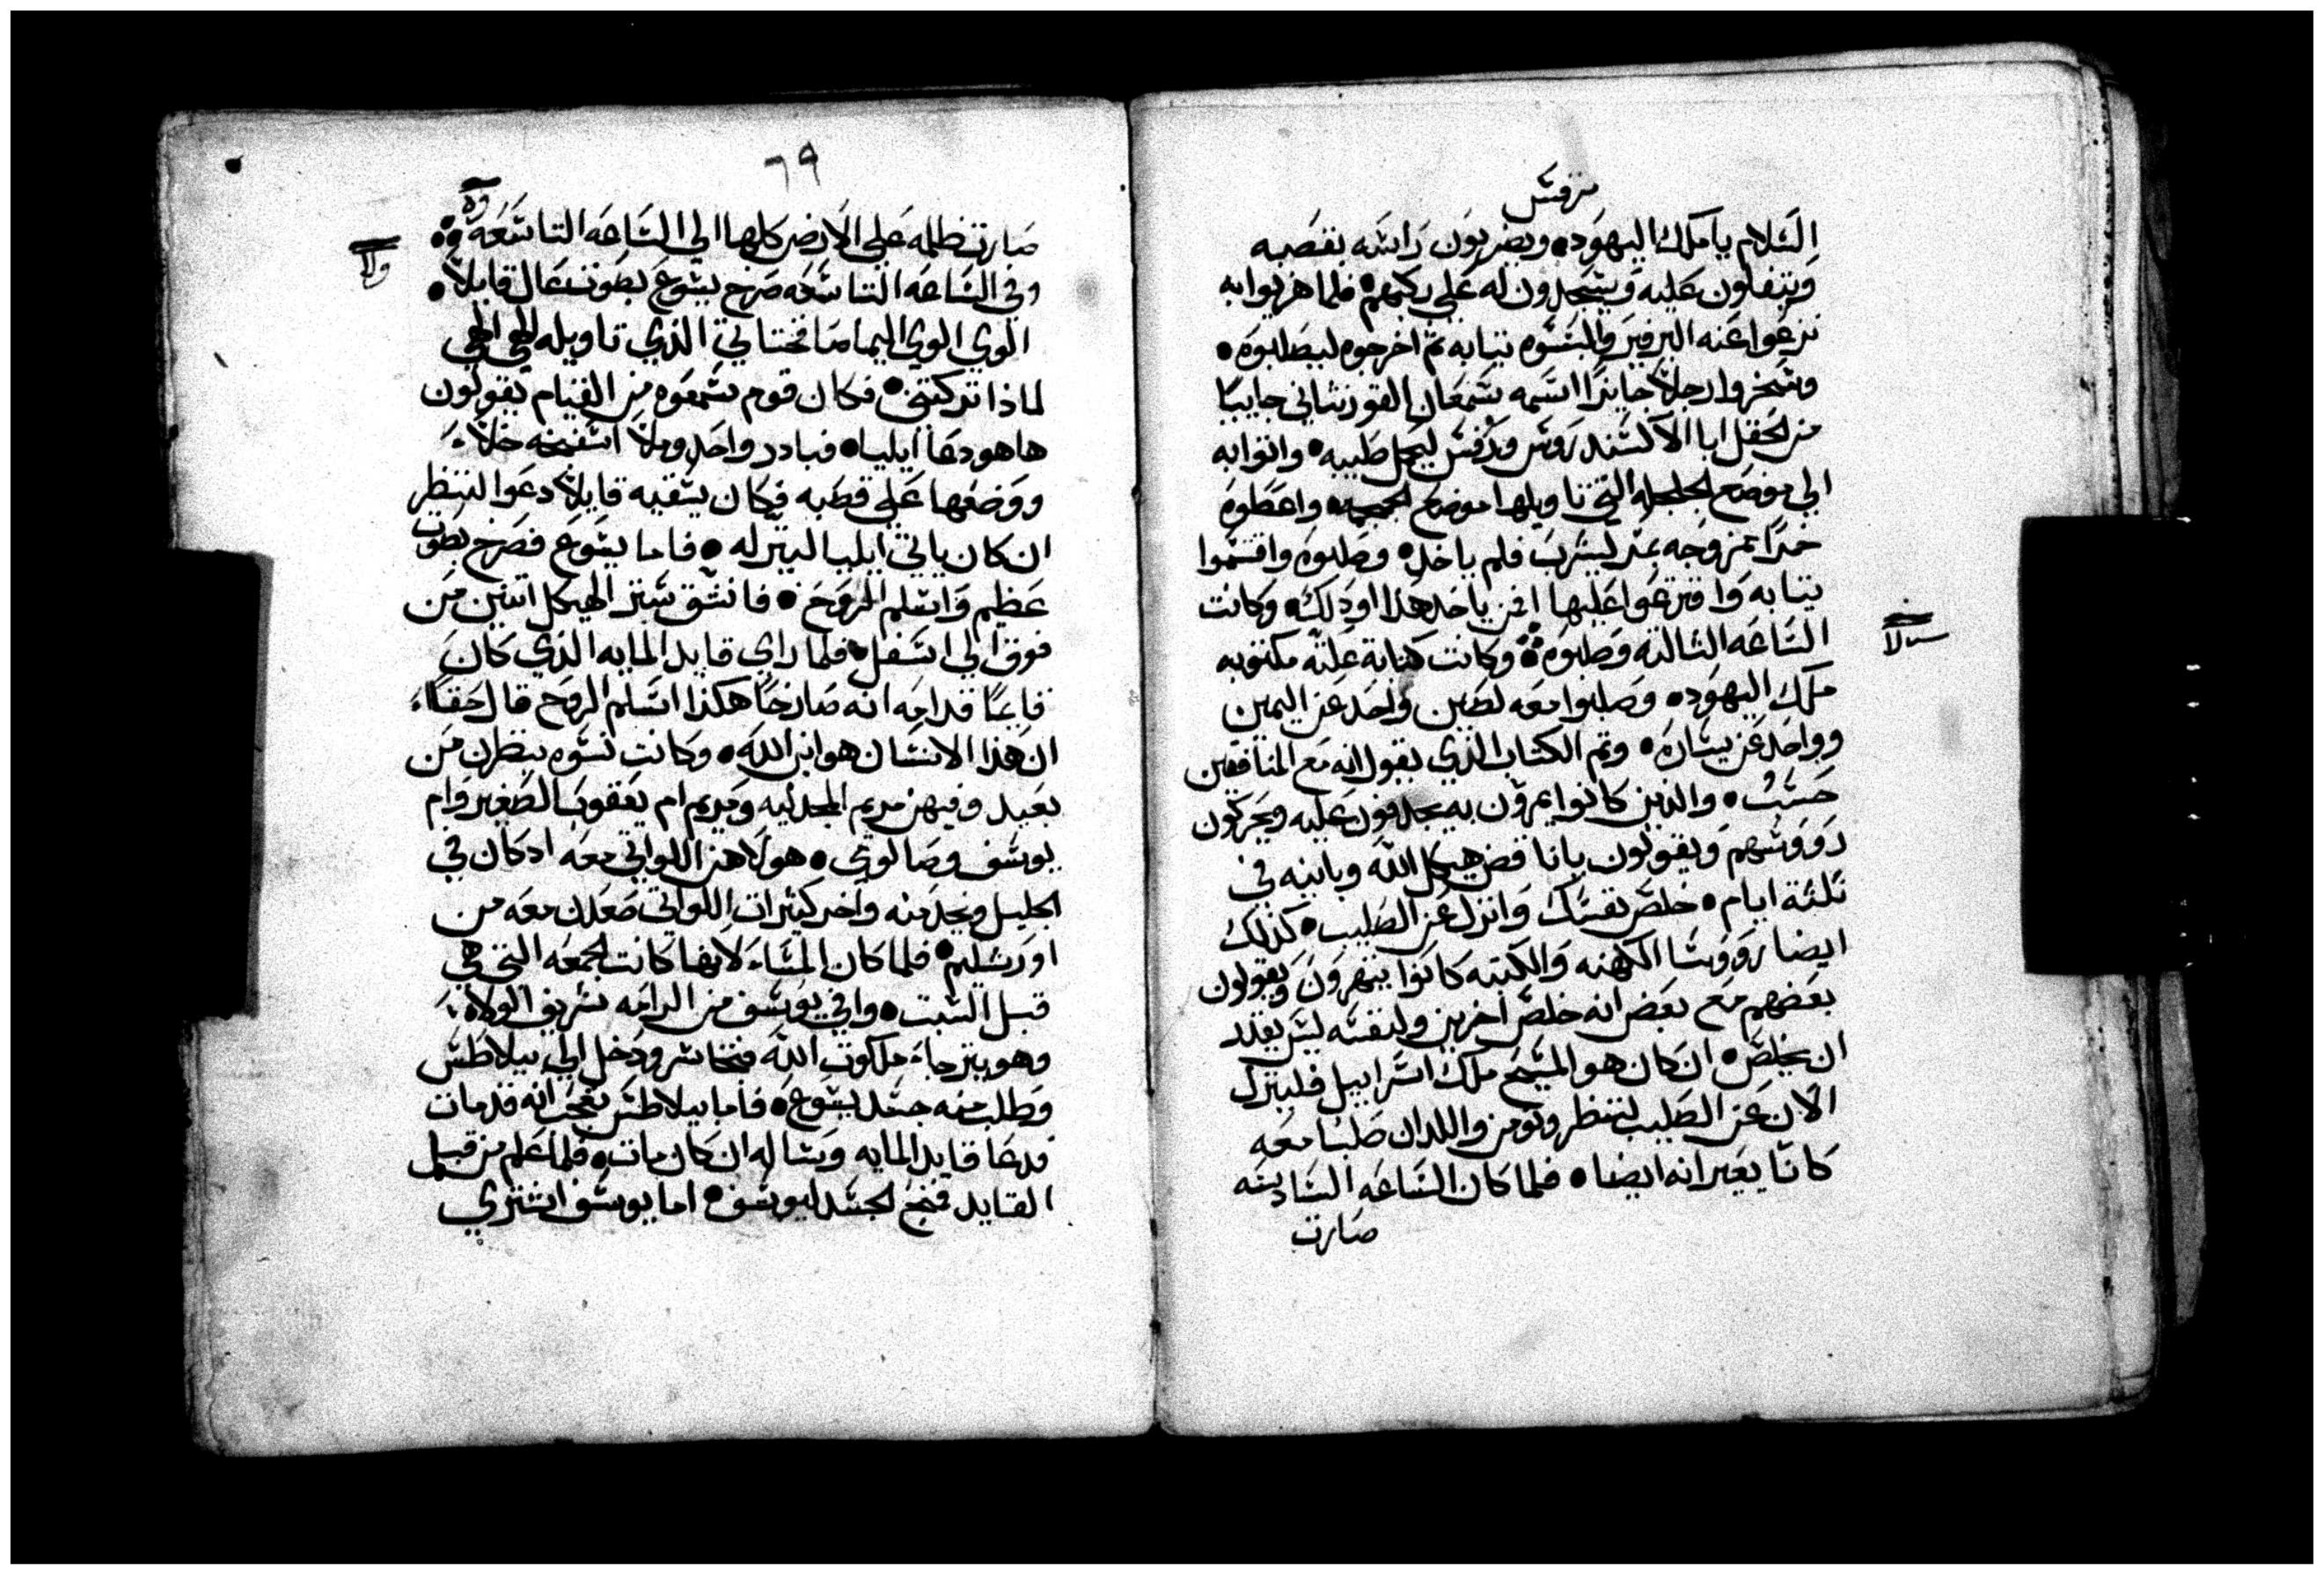 مرقس
السلام يا ملك اليهود، ويضربون راسه بقصبه
ويتفلون عليه ويسجدون له علي ركبهم، فلما هزيوا به
نزعوا عنه البرفير والبسوه تيابه تم اخرجوه ليصلبوه،
وسخروا رجلا جايزا اسمه سمعان القورناني جاييا
من الحقل ابا الاكسندروس وروفس ليحمل صليبه، واتوا به
الي موضع الجلجله التي تاويلها موضع الجمجمه، واعطوه
خمرا ممزوجه بمر ليشرب فلم ياخد، وصلبوه واقتسموا
تيابه واقترعوا عليها من ياخد هدا او دلك، وكانت
الساعه التالته وصلبوه، وكانت كتابة علته مكتوبه
ملك اليهود، وصلبوا معه لصين واحد عن اليمين
وواحد عن يساره، وتم الكتاب الذي يقول انه مع المنافقين
حسب، والذين كانوا يمرون به يجدفون عليه ويحركون
رووسهم ويقولون يا ناقض هيكل الله وبانيه في
تلثة ايام، خلص نفسك وانزل عن الصليب، كذلك
ايضا رووسا الكهنه والكتبه كانوا يتهزون ويقولون
بعضهم مع بعض انه خلص اخرين ولنفسه ليس يقدر
ان يخلص، ان كان هو المسيح ملك اسراييل فلينزل
الان عن الصليب لننظر ونومن واللدان صلبا معه
كانا يعيرانه ايضا، فلما كان الساعه السادسه
صارت
٦٩
صارت ظلمه علي الارض كلها الي الساعه التاسعه
وفي الساعه التاسعه صرخ يسوع بصوت عال قايلا،
الوي الوي اليما صافختاني الذي تاويله الهي الهي
لماذا تركتني، فكان قوم سمعوه من القيام يقولون
ها هو دعا ايليا، فبادر واحد وملا اسفنجه خلا
ووضعها علي قصبه فكان يسقيه قايلا دعوا لننظر
ان كان ياتي ايليا لينزله، فاما يسوع فصرخ بصوت
عظيم واسلم الروح، فانشق ستر الهيكل اتنين من
فوق الي اسفل، فلما راي قايد المايه الذي كان
قايما قدامه انه صارخا هكذا اسلم الروح قال حقا
ان هذا الانسان هو ابن الله، وكانت نسوه ينظرن من
بعيد وفيهن مريم المجدليه ومريم ام يعقوب الصغير وام
يوسف وصالومي، هولاهن اللواتي معه اد كان في
الجليل ويخدمنه واخر كثيرات اللواتي صعدن معه من
اورسليم، فلما كان المساء لانها كانت الجمعه التي هي
قبل السبت، وافي يوسف من الرامه شريف الولاه
وهو يترجاء ملكوت الله فتجاسر ودخل الي بيلاطس
وطلب منه جسد يسوع، فاما بيلاطس تعجب انه قد مات
فدعا قايد المايه وساله ان كان مات، فلما علم من قبل
القايد فمنح الجسد ليوسف، اما يوسف اشتري